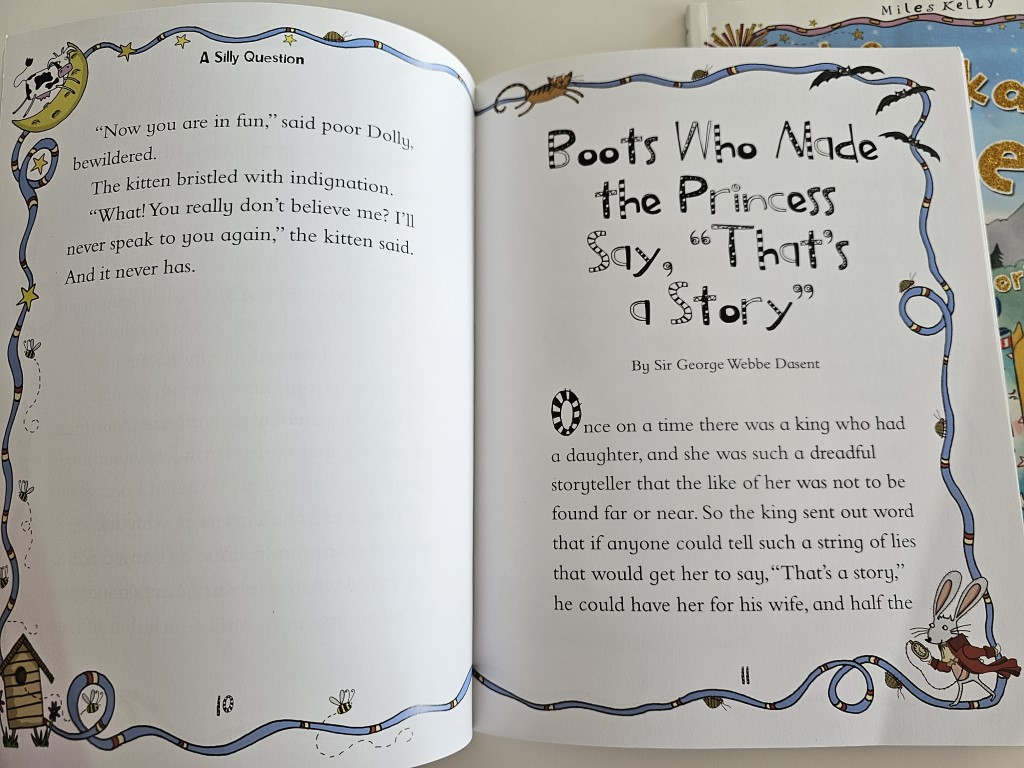 A Silly Question
“Now you are in fun,” said poor Dolly,
bewildered.
The kitten bristled with indignation.
“What! You really don’t believe me? I’ll
never speak to you again,” the kitten said.
And it never has.
10
Boots Who Made
the Princess
Say, “That’s
a Story”
By Sir George Webbe Dasent
Once on a time there was a king who had
a daughter, and she was such a dreadful
storyteller that the like of her was not to be
found far or near. So the king sent out word
that if anyone could tell such a string of lies
that would get her to say, “That’s a story,”
he could have her for his wife, and half the
11
Miles Kelly